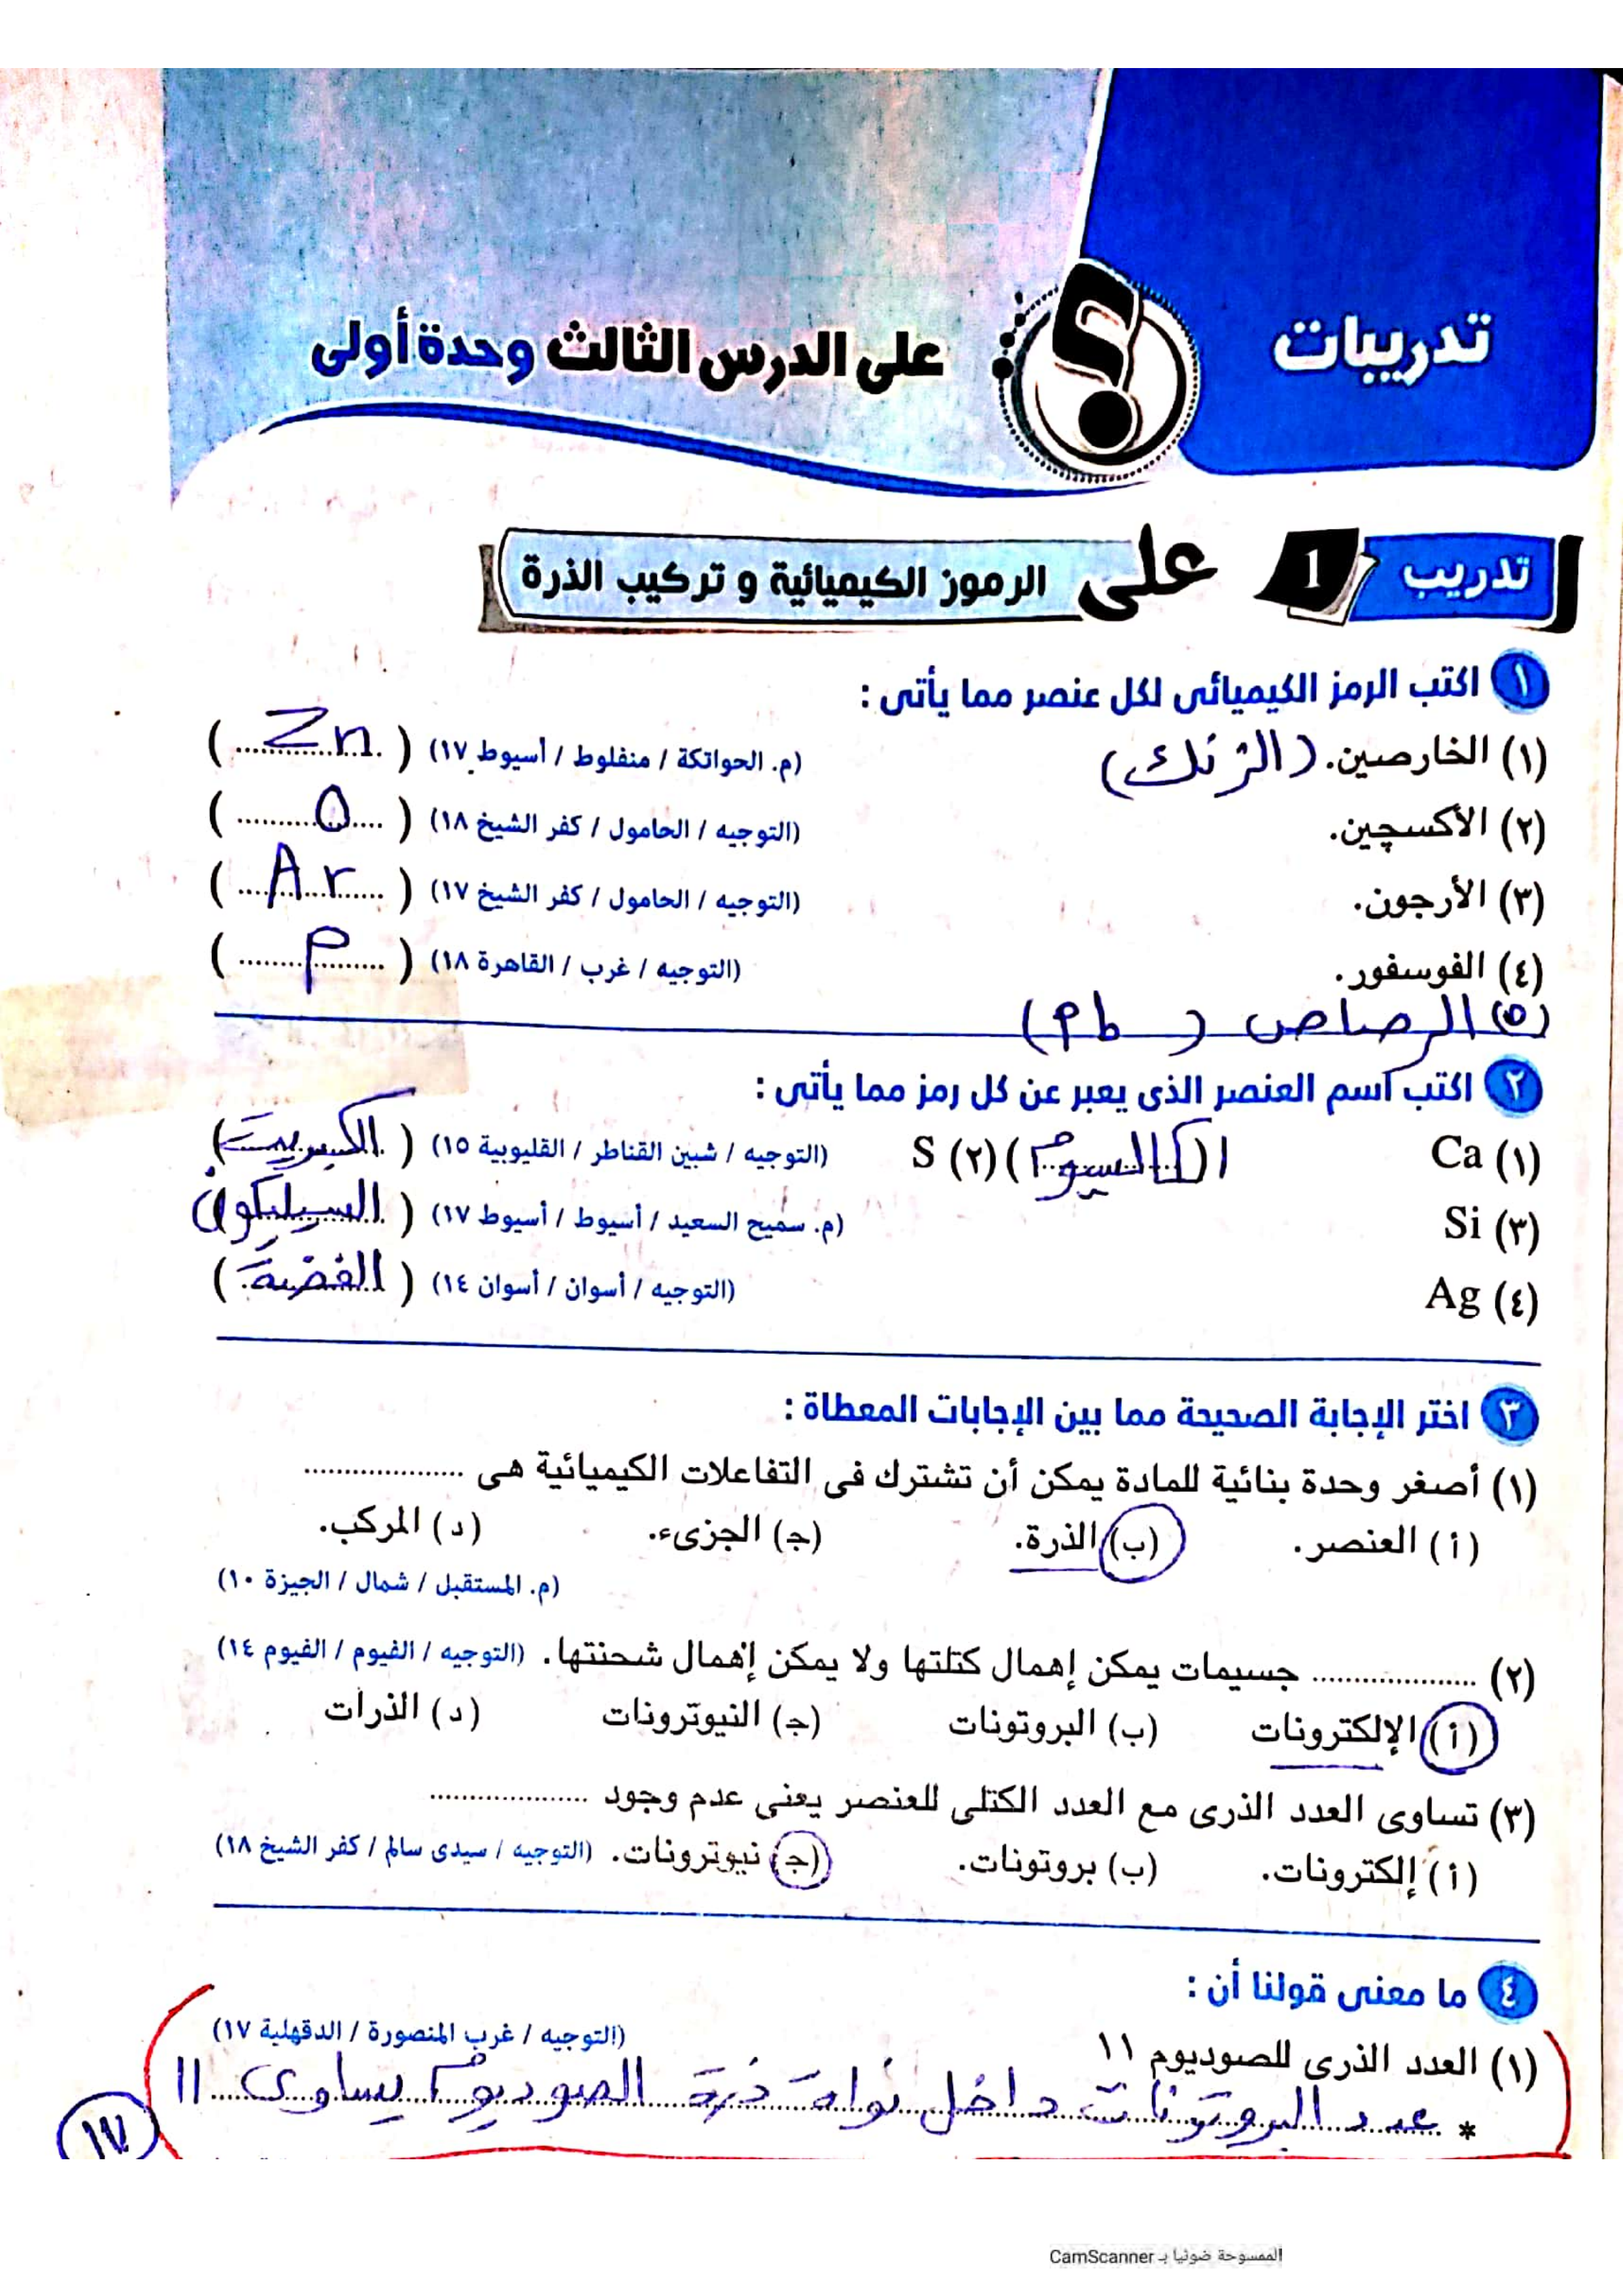 تدريبات
على الدرس الثالث وحدة أولى
تدريب 1 على الرموز الكيميائية و تركيب الذرة
١ اكتب الرمز الكيميائى لكل عنصر مما يأتى :
(١) الخارصين. (الزنك) (م. الحواتكة / منفلوط / أسيوط ١٧) ( Zn )
(٢) الأكسچين. (التوجيه / الحامول / كفر الشيخ ١٨) ( O )
(٣) الأرجون. (التوجيه / الحامول / كفر الشيخ ١٧) ( Ar )
(٤) الفوسفور. (التوجيه / غرب / القاهرة ١٨) ( P )
(٥) الرصاص ( Pb )
٢ اكتب اسم العنصر الذى يعبر عن كل رمز مما يأتى :
(١) Ca (الكالسيوم) (٢) S (التوجيه / شبين القناطر / القليوبية ١٥) ( الكبريت )
(٣) Si (م. سميح السعيد / أسيوط / أسيوط ١٧) ( السيليكون )
(٤) Ag (التوجيه / أسوان / أسوان ١٤) ( الفضة )
٣ اختر الإجابة الصحيحة مما بين الإجابات المعطاة :
(١) أصغر وحدة بنائية للمادة يمكن أن تشترك فى التفاعلات الكيميائية هى ....................
(أ) العنصر. (ب) الذرة. (جـ) الجزىء. (د) المركب.
(م. المستقبل / شمال / الجيزة ١٠)
(٢) .................... جسيمات يمكن إهمال كتلتها ولا يمكن إهمال شحنتها. (التوجيه / الفيوم / الفيوم ١٤)
(أ) الإلكترونات (ب) البروتونات (جـ) النيوترونات (د) الذرات
(٣) تساوى العدد الذرى مع العدد الكتلى للعنصر يعنى عدم وجود ....................
(أ) إلكترونات. (ب) بروتونات. (جـ) نيوترونات. (التوجيه / سيدى سالم / كفر الشيخ ١٨)
٤ ما معنى قولنا أن :
(١) العدد الذرى للصوديوم ١١ (التوجيه / غرب المنصورة / الدقهلية ١٧)
* عدد البروتونات داخل نواة ذرة الصوديوم يساوى ١١
١١٧
الممسوحة ضوئيا بـ CamScanner